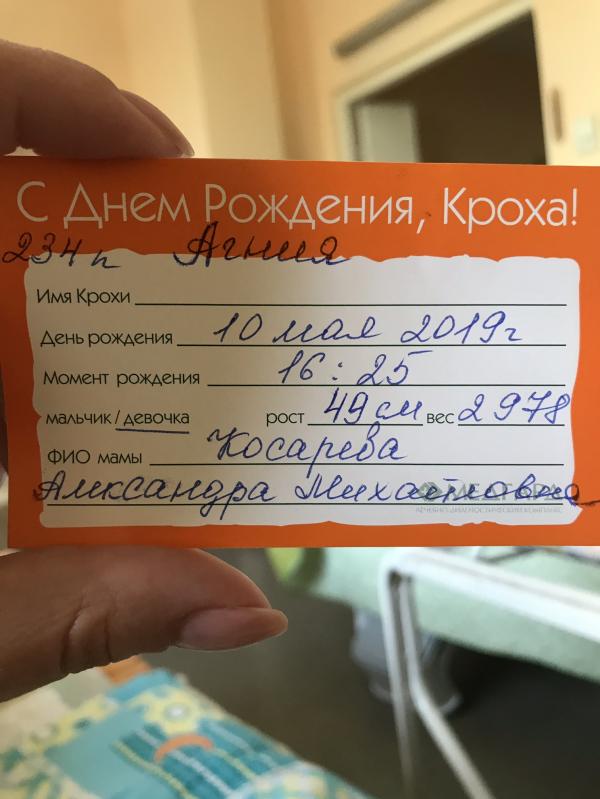 С Днем Рождения, Кроха!
234 п Агния
Имя Крохи
День рождения 10 мая 2019 г
Момент рождения 16:25
мальчик / девочка рост 49 см вес 2978
ФИО мамы Косарева
Александра Михайловна
МЕДГАРД
ЛЕЧЕБНО-ДИАГНОСТИЧЕСКИЙ КОМПЛЕКС